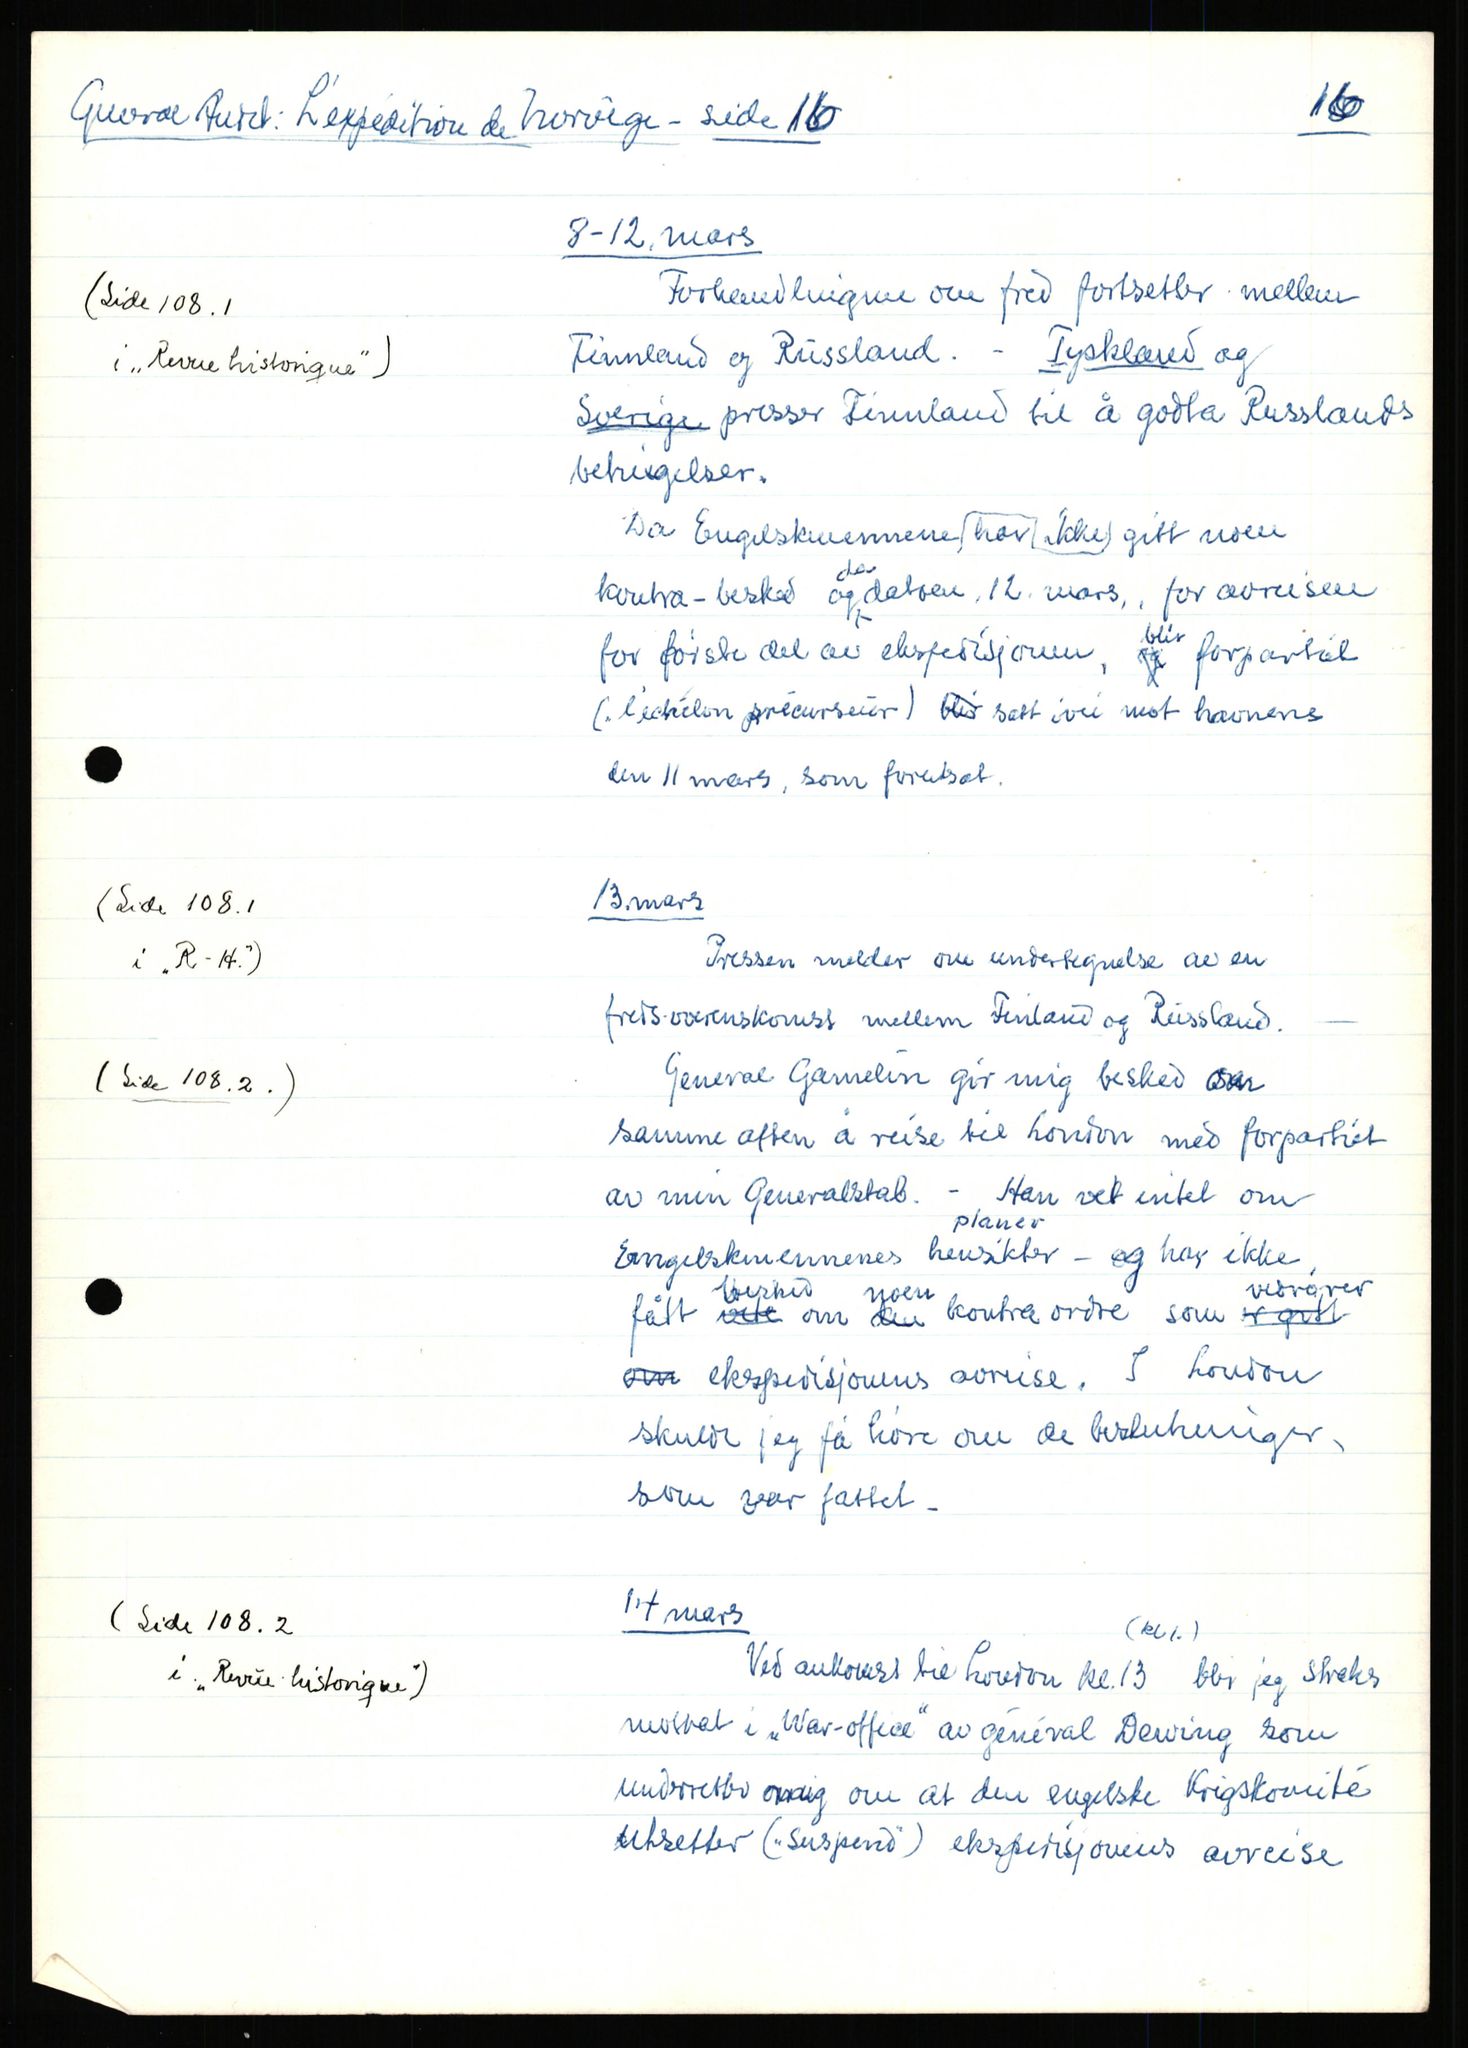 General Audet: L'expédition de Norvège - side 16
16
8-12. mars
(Side 108.1
i „Revue historique")
Forhandlingene om fred fortsetter mellem
Finnland og Russland. - Tyskland og
Sverige presser Finnland til å godta Russlands
betingelser.
Da Engelskmennene har ikke gitt noen
kontra-beskjed og den datoen, 12. mars, for avreisen
for første del av ekspedisjonen, blir forpartiet
(„l'échelon précurseur) blir satt ivei mot havnene
den 11 mars, som forutsat.
(Side 108.1
i „R-H.")
13. mars
Pressen melder om undertegnelse av en
freds-overenskomst mellem Finland og Russland. —
(Side 108.2.)
General Gamelin gir mig beskjed om
samme aften å reise til London med forpartiet
av min Generalstab. - Han vet intet om
planer
Engelskmennenes hensikter - og har ikke
beskjed noen vedrører
fått vite om den kontra ordre som er gitt
om ekspedisjonens avreise. I London
skulde jeg få høre om de beslutninger,
som var fattet -
(Side 108.2
i „Revue historique")
14 mars
(kl 1.)
Ved ankomst til London kl. 13 blir jeg straks
mottat i „War-office" av général Dewing som
underretter mig om at den engelske Krigskomité
utsetter („suspend") ekspedisjonens avreise